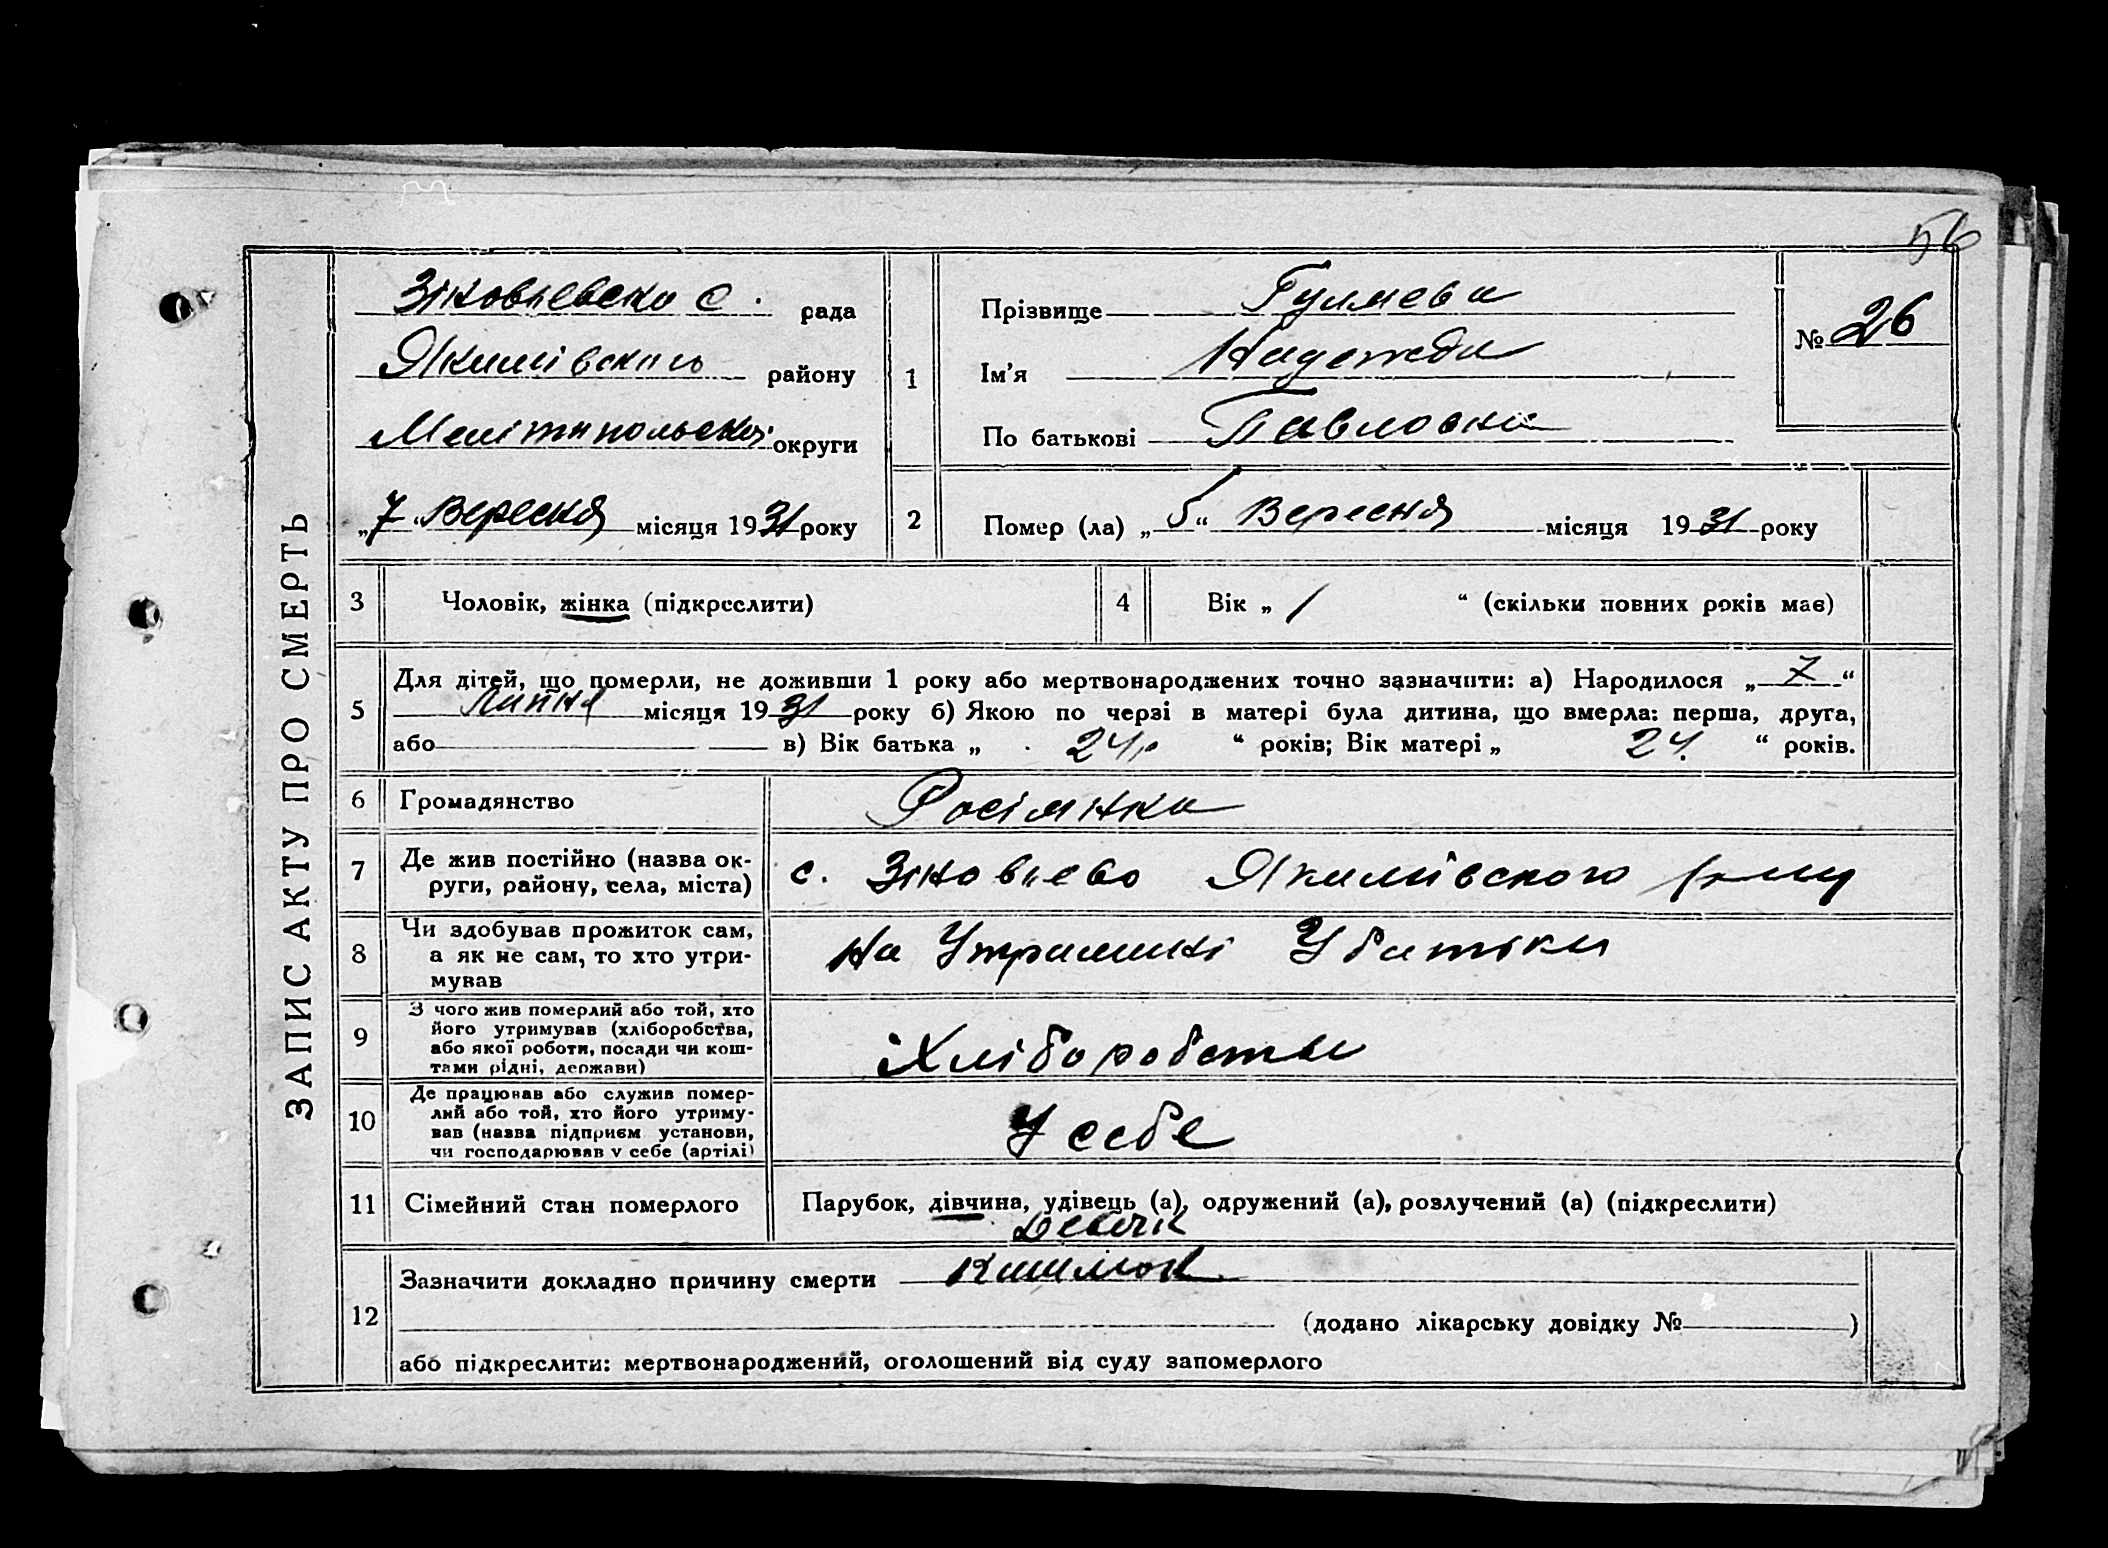 56
ЗАПИС АКТУ ПРО СМЕРТЬ
Зіновьевска с. рада
Якимівского району
Мелітопольскої округи
„7“ Вересня місяця 1931 року
1
Прізвище Гуляева
Ім’я Надежда
По батькові Павловна
№ 26
2
Помер (ла) „5“ Вересня місяця 1931 року
3 Чоловік, жінка (підкреслити)
4 Вік „ 1 “ (скільки повних років має)
5
Для дітей, що померли, не доживши 1 року або мертвонароджених точно зазначити: а) Народилося „ 7 “
Липня місяця 1931 року б) Якою по черзі в матері була дитина, що вмерла: перша, друга,
або в) Вік батька „ 24 “ років; Вік матері „ 24. “ років.
6 Громадянство Росіянка
7 Де жив постійно (назва ок-
руги, району, села, міста)
с. Зіновьево Якимівского
8 Чи здобував прожиток сам,
а як не сам, то хто утри-
мував
На Утримані У батька
9 З чого жив померлий або той, хто
його утримував (хліборобства,
або якої роботи, посади чи кош-
тами рідні, держави)
Хліборобства
10 Де працював або служив помер-
лий або той, хто його утриму-
вав (назва підприєм установи,
чи господарював у себе (артілі)
У себе
11 Сімейний стан померлого
Парубок, дівчина, удівець (а), одружений (а), розлучений (а) (підкреслити)
12 Зазначити докладно причину смерти
(додано лікарську довідку № )
або підкреслити: мертвонароджений, оголошений від суду запомерлого